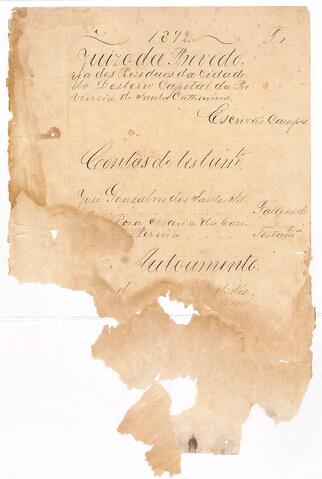 1872. F 1
Juizo da Provedo-
ria dos Residuos da Cidade
do Desterro Capital da Pro
vincia de Santa Catharina.
Escrivão Campos
Contas de testamto
José Gonsalves dos Santos Sil
Fallecido
Rosa Maria da Con
Testamra
Autoamento.
d